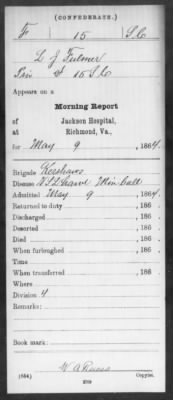 (CONFEDERATE.)
F 15 S.C
L J Fulmer
Pri 15 S C
Appears on a
Morning Report
of Jackson Hospital,
at Richmond, Va.,
for May 9, 1864.
Brigade Kershaws
Disease V.S. Min ball
Admitted May 9, 1864.
Returned to duty, 186 .
Discharged, 186 .
Deserted, 186 .
Died, 186 .
When furloughed, 186 .
Time
When transferred, 186 .
Where
Division 4
Remarks:
Book mark:
(654)
Copyist.